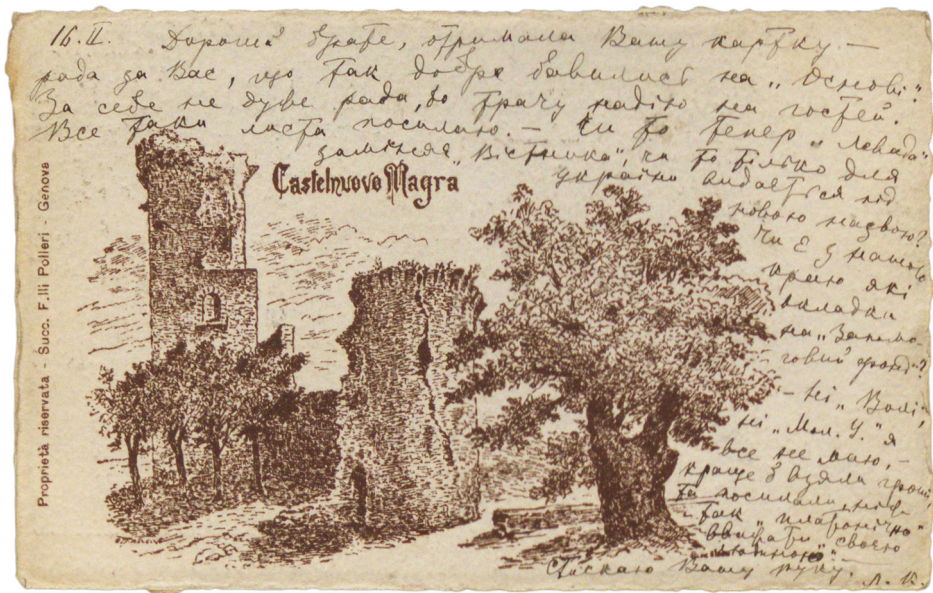 16. II. Дорогий брате, отримала Вашу картку –
рада за Вас, що так добре бавились на „Основі“.
За себе не дуже рада, бо трачу надію на гостей.
Все таки листа посилаю. – Чи то тепер „Левада“
замість „Вістника“, чи то тілько для
україни видається під
новою назвою?
Чи є з нашого
краю які
вкладки
на „Запомо-
говий фонд“?
– Ні „Волі“,
ні „Мол. У.“ я
все не маю, –
краще б взяли гроші
та посилали, ніж
так „платонічно“
вважати „своєю“
Стискаю Вашу руку.
Л. К.
Castelnuovo Magra
Proprietà riservata - Succ. F.lli Polleri - Genova